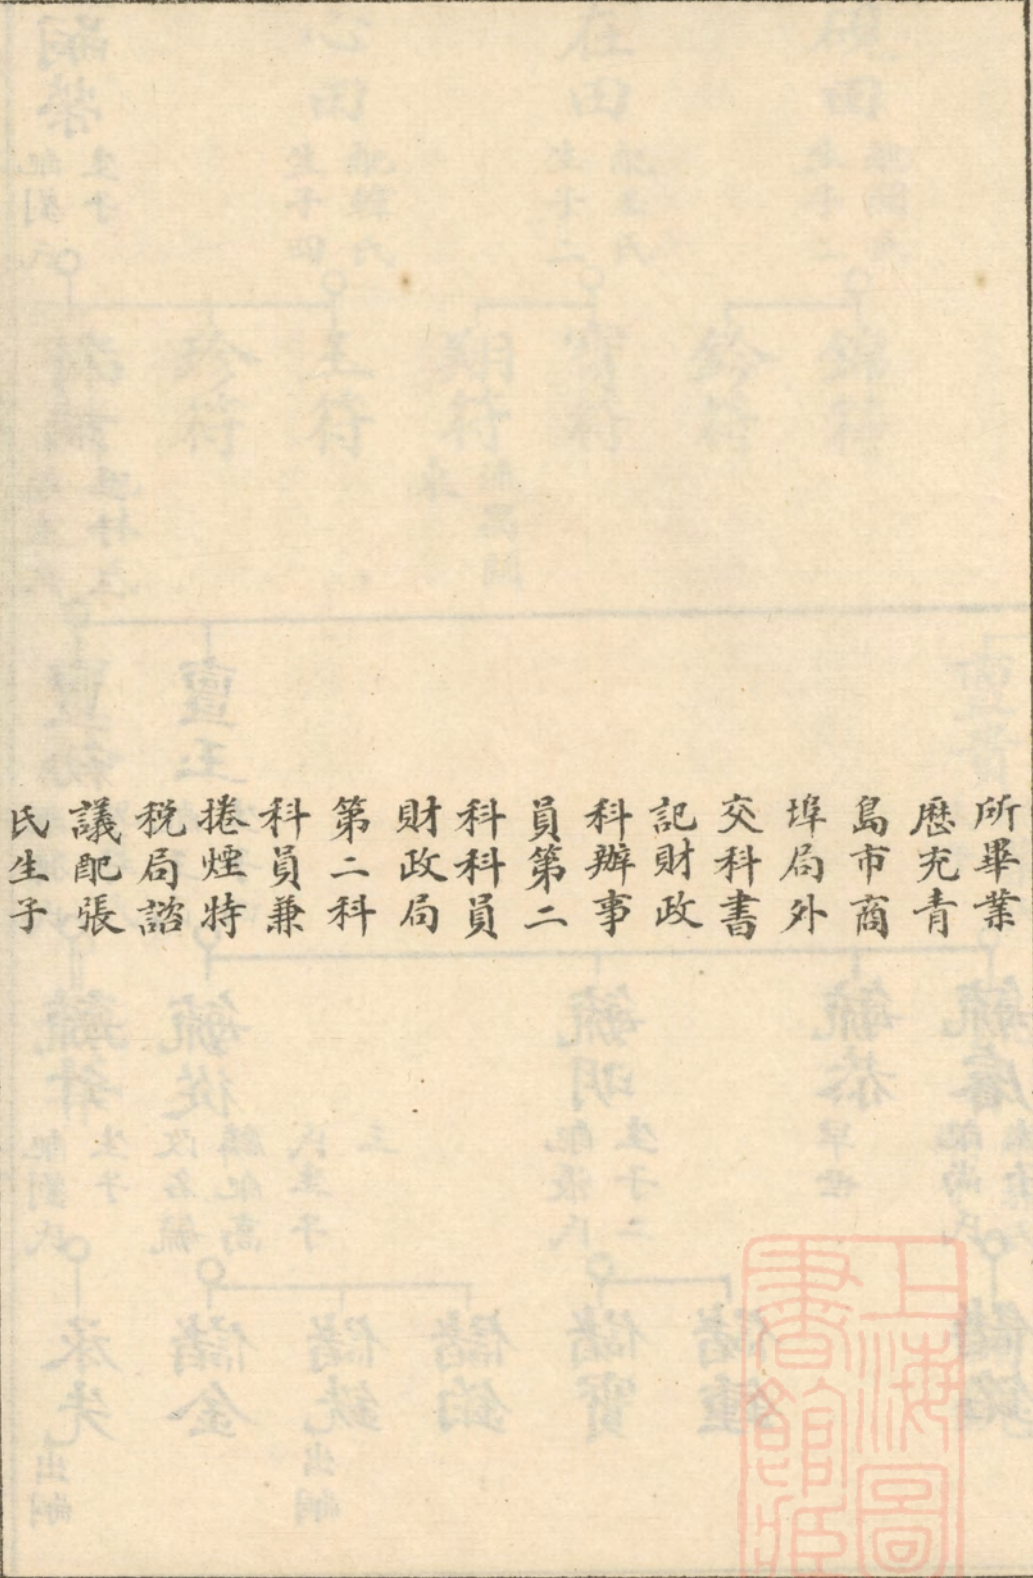 所畢業
歷充青
島市商
埠局外
交科書
記財政
科辦事
員第二
科科員
財政局
第二科
科員兼
捲煙特
税局諮
議配張
氏生子
上海圖
書館